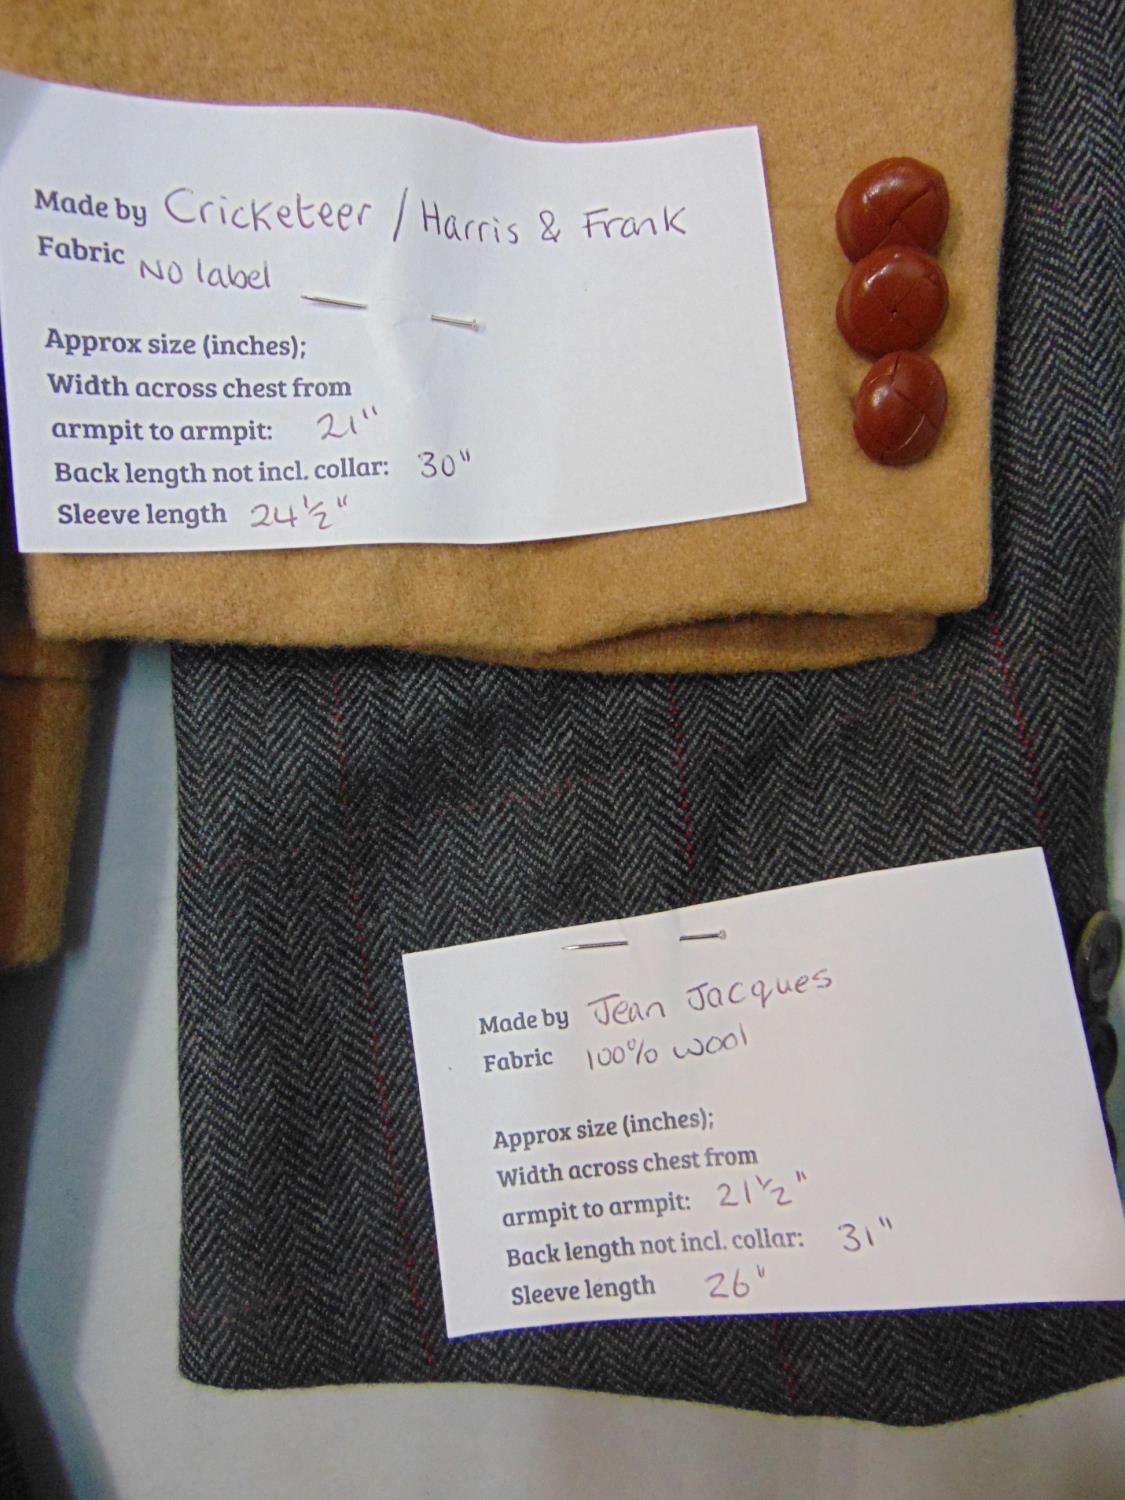 Made by Cricketeer / Harris & Frank
Fabric No label
Approx size (inches);
Width across chest from
armpit to armpit: 21"
Back length not incl. collar: 30"
Sleeve length 24 1/2"
Made by Jean Jacques
Fabric 100% wool
Approx size (inches);
Width across chest from
armpit to armpit: 21 1/2"
Back length not incl. collar: 31"
Sleeve length 26"